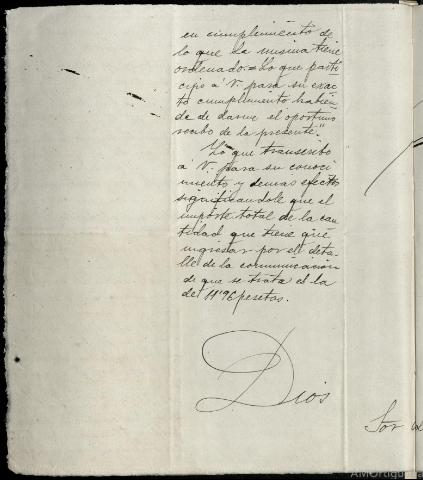 en cumplimiento de
lo que la misma tiene
ordenado.=Lo que parti
cipo á V. para su exac
to cumplimiento habien
do de darme el oportuno
recibo de la presente."
Lo que transcribo
á V. para su conoci
miento y demas efectos
significandole que el
importe total de la can
tidad que tiene que
ingresar por el deta-
lle de la comunicación
de que se trata es la
de 11'96 pesetas.
Dios
Sor